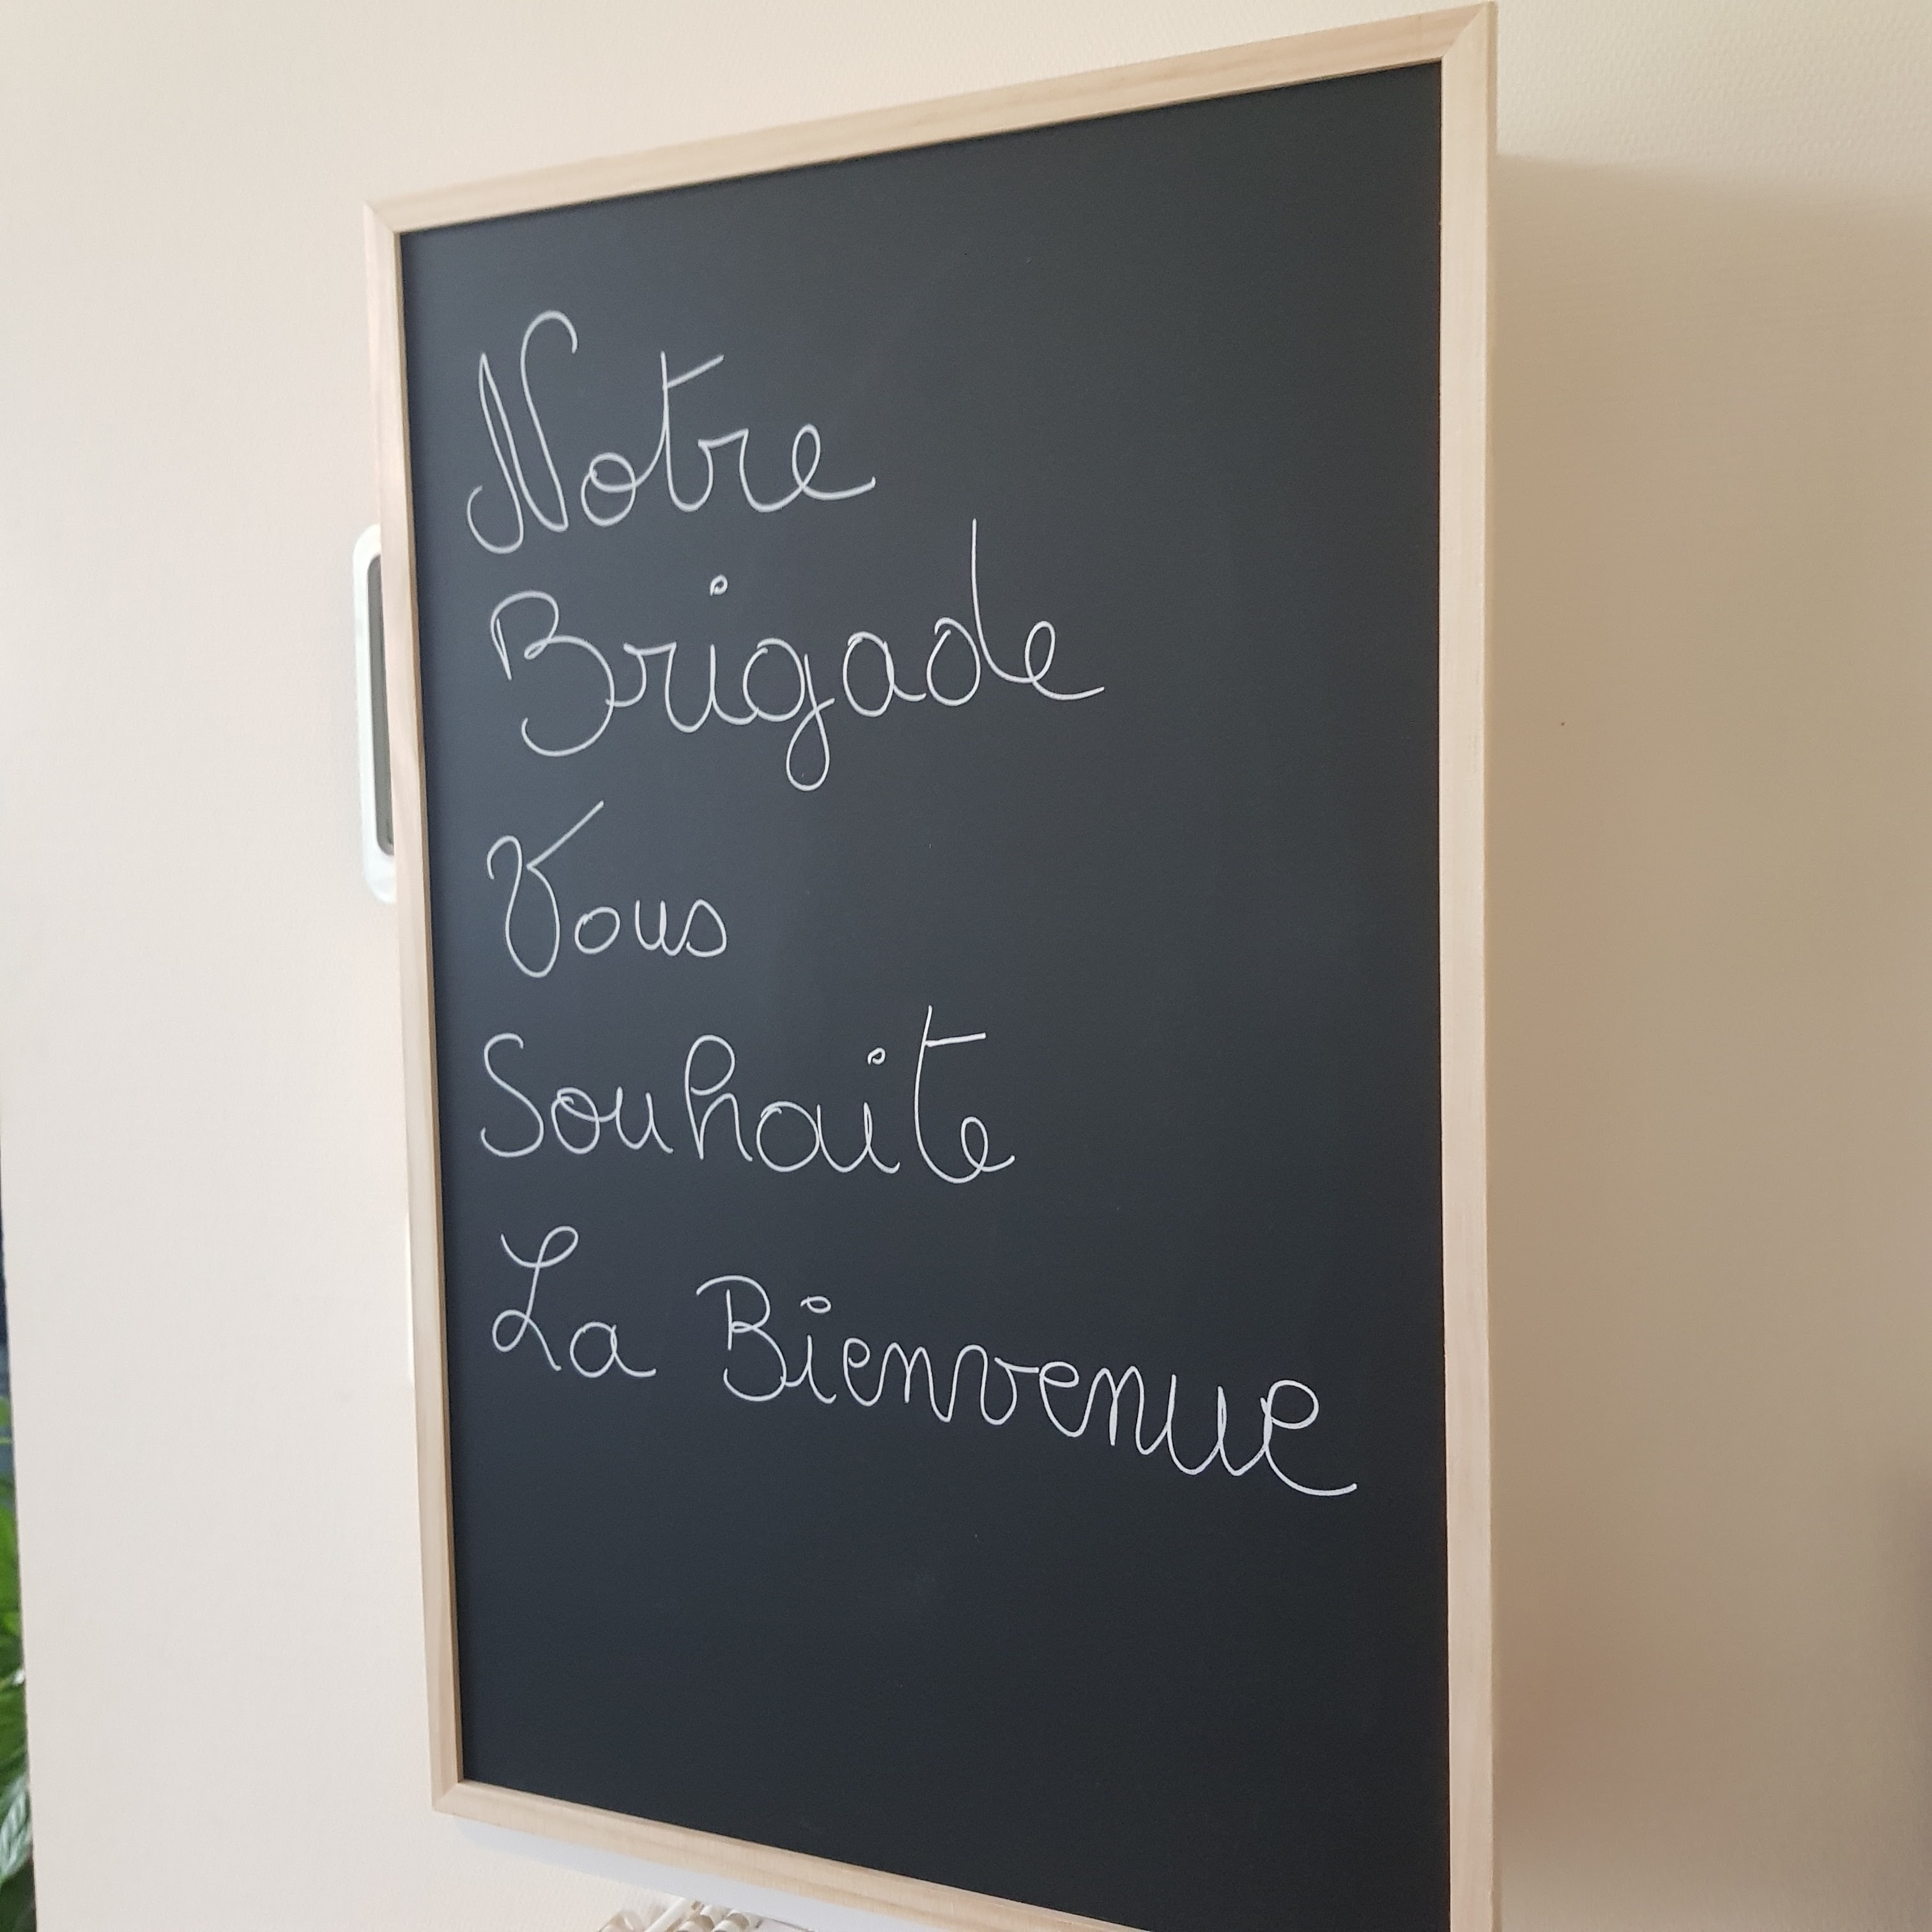 Notre
Brigade
Vous
Souhaite
La Bienvenue